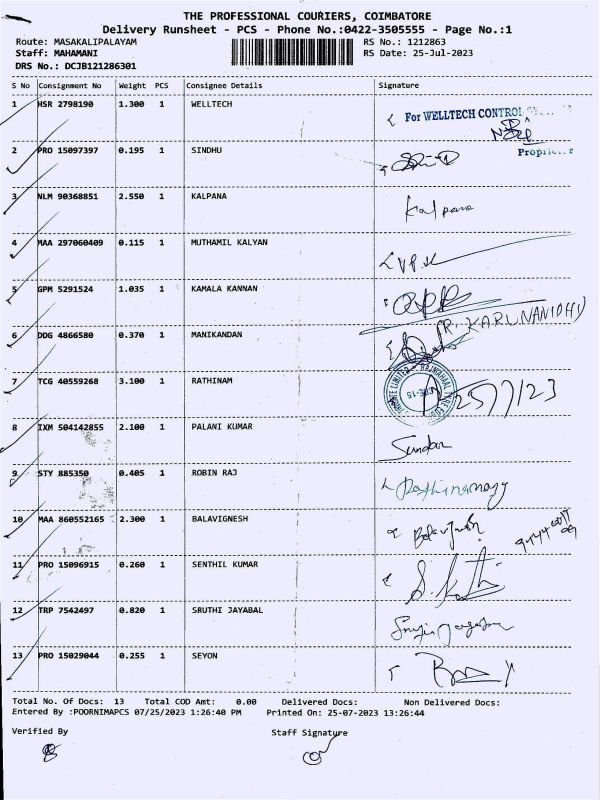 THE PROFESSIONAL COURIERS, COIMBATORE
Delivery Runsheet - PCS - Phone No.:0422-3505555 - Page No.:1
Route: MASAKALIPALAYAM RS No.: 1212863
Staff: MAHAMANI RS Date: 25-Jul-2023
DRS No.: DCJB121286301
S No Consignment No Weight PCS Consignee Details Signature
1 HSR 2798190 1.300 1 WELLTECH
For WELLTECH CONTROL
2 PRO 15097397 0.195 1 SINDHU
3 NLM 90368851 2.550 1 KALPANA Kalpana
4 MAA 297060409 0.115 1 MUTHAMIL KALYAN
5 GPM 5291524 1.035 1 KAMALA KANNAN
(R. KARUNANIDHI)
6 DDG 4866580 0.370 1 MANIKANDAN
7 TCG 40559268 3.100 1 RATHINAM 25/7/23
8 IXM 504142855 2.100 1 PALANI KUMAR Sundar
9 STY 885350 0.405 1 ROBIN RAJ
10 MAA 860552165 2.300 1 BALAVIGNESH Balavignesh
11 PRO 15096915 0.260 1 SENTHIL KUMAR
12 TRP 7542497 0.820 1 SRUTHI JAYABAL
13 PRO 15029044 0.255 1 SEYON
Total No. Of Docs: 13 Total COD Amt: 0.00 Delivered Docs: Non Delivered Docs:
Entered By :POORNIMAPCS 07/25/2023 1:26:40 PM Printed On: 25-07-2023 13:26:44
Verified By Staff Signature